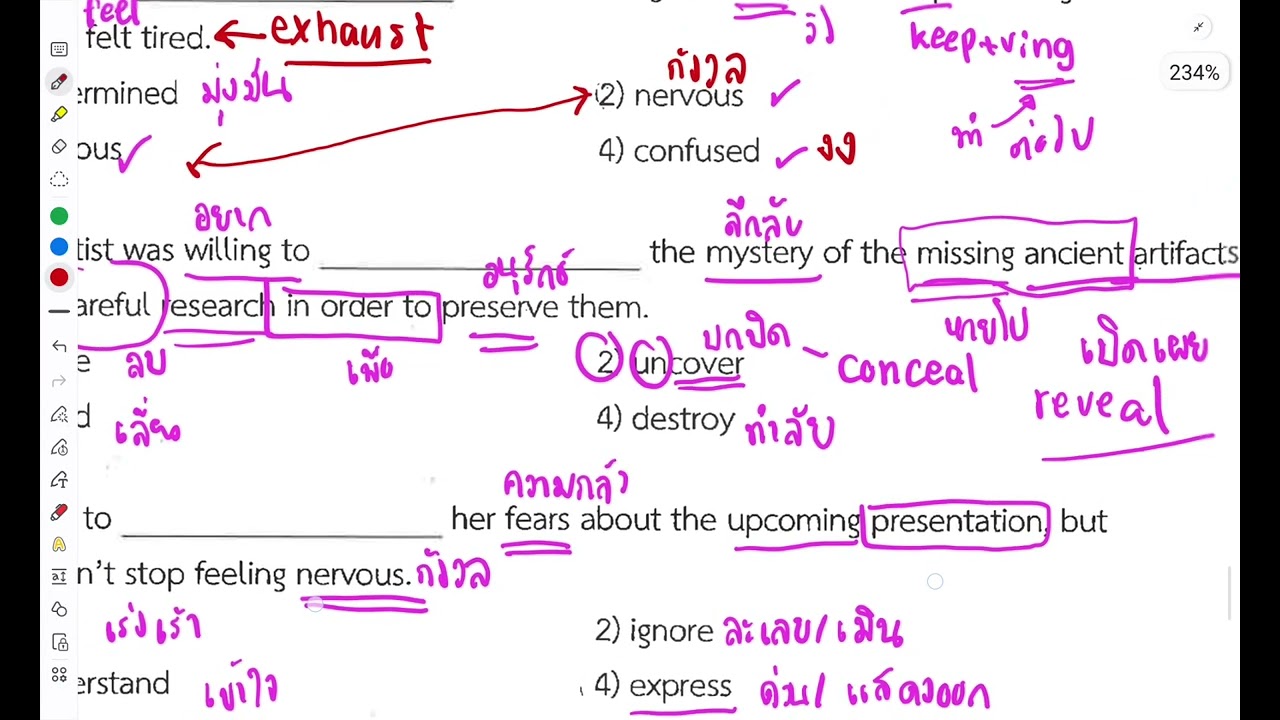 feel
felt tired. ← exhaust
keep+ving
234%
กังวล
ermined มุ่งมั่น
2) nervous ✓
ทำ ต่อไป
ous ✓
4) confused ✓ งง
อยาก
ลึกลับ
tist was willing to ____________ the mystery of the missing ancient artifacts
อนุรักษ์
areful research in order to preserve them.
หายไป
ปกปิด
เปิดเผย
e ลบ
เพื่อ
2) uncover ~ conceal
reveal
d เลี่ยน
4) destroy ทำลัย
ความกลัว
to ____________ her fears about the upcoming presentation, but
n't stop feeling nervous. กังวล
เร่งเร้า
2) ignore ละเลย/เมิน
erstand เข้าใจ
4) express ด่วน/แสดงออก